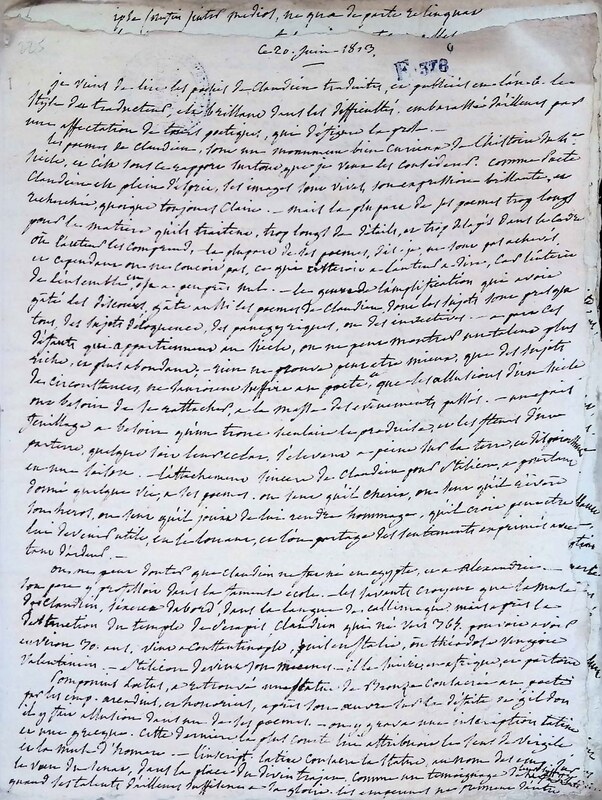 ipse
225
ce 20. juin 1813.
F. 376
je viens de lire les poésies de Claudien traduites, et publiées en l'an 6. le
style du traducteur, est brillant dans les difficultés. embarrassé d'ailleurs par
une affectation de tours poétiques, qui défigure la prose. —
les poemes de Claudien, sont un monument bien curieux de l'histoire du 4e
siècle, et c'est sous ce rapport surtout, que je veux les considérer. comme poete
Claudien est plein de force, ses images sont vives, son expression brillante, et
recherchée, quoique toujours claire. — mais la plupart de ses poemes trop longs
pour la matiere qu'ils traitent, trop longs de détails, et trop dans le cadre
où l'auteur les comprend. — la plupart de ses poemes, dit-je, ne sont pas achevés,
et cependant on ne conçoit pas, ce qui resteroit à l'auteur à dire, car l'intérêt
de l'ensemble, est à peu près nul. — le genre de l'amplification qui avoit
gâté les discours, gâte aussi les poemes de Claudien, dont les sujets sont presque
tous, des sujets d'éloquence, des panegyriques, ou des invectives. — à part ces
défauts qui appartiennent au siècle, on ne peut montrer un talent plus
riche, et plus abondant. — rien ne prouve peut être mieux, que des sujets
de circonstances, ne sauroient suffire au poete, que les allusions d'un siècle
ont besoin de se rattacher, à la masse des évènements passés. — un epais
feuillage a besoin qu'un tronc séculaire le produise, et les fleurs d'un
parterre, quelque soit leur éclat, s'élevent à peine sur la terre, et
en une saison. — l'attachement sincere de Claudien pour Stilicon, a pourtant
donné quelque vie, à ses poemes. on sent qu'il cherit, on sent qu'il revere
son heros, on sent qu'il jouit de lui rendre hommage, qu'il croit peut etre
lui devenir utile, en le louant, et l'on partage des sentiments exprimés avec
tant d'ardeur. —
on, ne peut douter que Claudien ne fut né en egypte, et à Alexandrie. —
son pere y professoit dans la fameuse école. — les savants croyent que la muse
de Claudien, s'exerça d'abord, dans la langue de Callimaque mais après la
destruction du temple de Serapis, Claudien qui né vers 365, pouvoit avoir
environ 30. ans, vint à Constantinople, puis en Italie, où théodose vengeoit
Valentinien. — Stilicon devint son mecenes. — il le suivit en afrique, et partout
Pomponius Laetus, a retrouvé une statue de bronze consacrée au poete
par les emp. arcadius, et honorius, après son œuvre sur la défaite de gildon
il y fait allusion dans un de ses poemes. — on y grava une inscription latine
et une grecque. cette derniere la plus courte lui attribue le sens de Virgile
et la muse d'homere. — l'inscript. latine consacre la statue, au nom des emp. sur
le vœu du sénat, dans la place du divin trajan, comme un témoignage
quand ses talents d'ailleurs suffisent à sa gloire. les empereurs